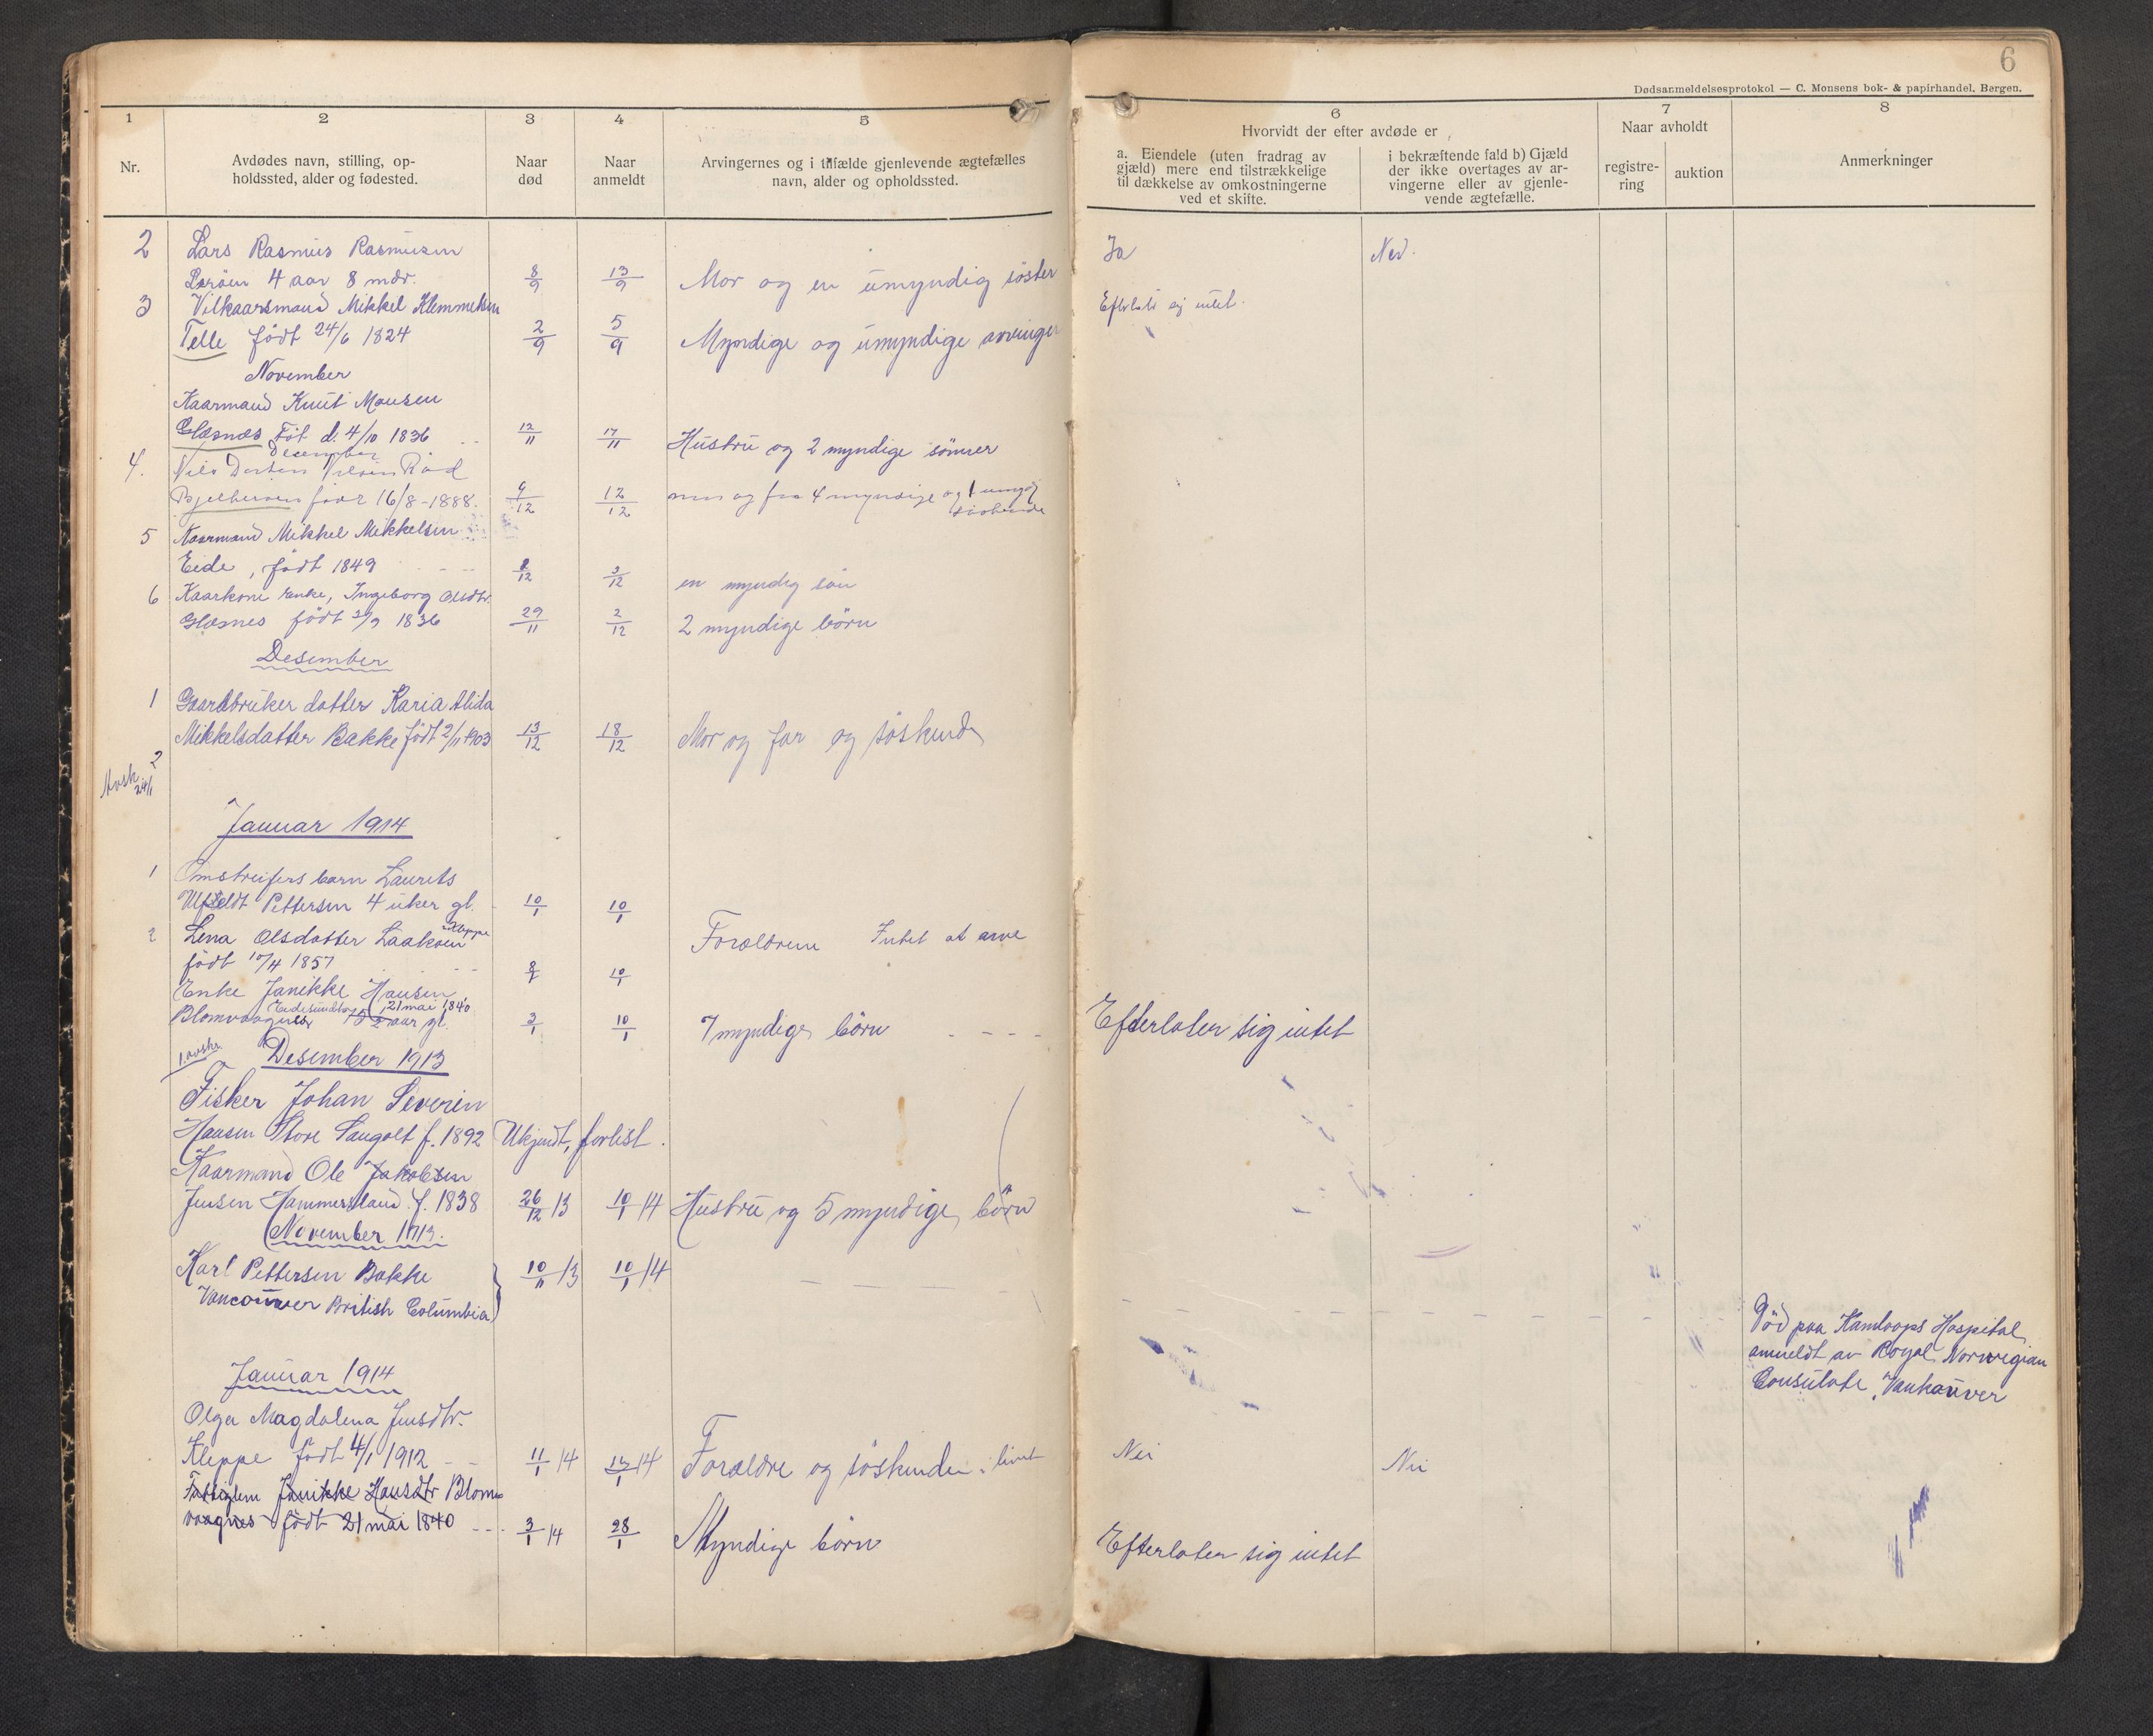 6
Dødsanmeldelsesprotokol — C. Monsens bok- & papirhandel, Bergen.
1 2 3 4 5 6 7 8
Nr.
Avdødes navn, stilling, op-
holdssted, alder og fødested.
Naar
død
Naar
anmeldt
Arvingernes og i tilfælde gjenlevende ægtefælles
navn, alder og opholdssted.
Hvorvidt der efter avdøde er
a. Eiendele (uten fradrag av
gjæld) mere end tilstrækkelige
til dækkelse av omkostningerne
ved et skifte.
i bekræftende fald b) Gjæld
der ikke overtages av ar-
vingerne eller av gjenle-
vende ægtefælle.
Naar avholdt
registre-
ring
auktion
Anmerkninger
2 Lars Rasmus Rasmusen Ja
4 aar 8 mdr. 8/9 13/9 Mor og en umyndig söster
3 Vilkaarsmand Mikkel Klemmetsen
Telle födt 24/6 1824 2/9 5/9 Myndige og umyndige arvinger
November
Kaarmand Knut Monsen
Glæsnes Föt d. 4/10 1836 12/11 17/11 Hustru og 2 myndige sönner
December
4. Nils
födt 16/8-1888. 9/12 12/12 4 myndige og 1
5 Kaarmand Mikkel Mikkelsen
Eide, födt 1849 /12 3/12 en myndig sön
6 Kaarkone Enke, Ingeborg Olsdtr.
Glæsnes födt /9 1836 29/11 2/12 2 myndige börn
Desember
1 Gaardbruker datter Karia Alida
Mikkelsdatter Bakke födt 2/11 1903 13/12 18/12 Mor og far og söskende
2
Avsk 24/1
Januar 1914
1 Omstreifers barn Laurits
Pettersen 4 uker gl. 10/1 10/1
2 Lena Olsdatter Kleppe Forældrene Intet at arve
födt 10/4 1857 10/1
Enke Janikke Hansen
21 mai 1840
Blomvaagnes 75 aar gl. 3/1 10/1 7 myndige börn - - - - Efterlater sig intet
1. avskr. Desember 1913
Fisker Johan Severin
Hansen Store Sangolt f. 1892 Ukjendt, forlist.
Kaarmand Ole Jakobsen
Jensen Hammersland f. 1838 26/12 13 10/1 14 Hustru og 5 myndige börn
November 1913.
Karl Pettersen Bakke 10/11 13 10/1 14
Vancouver British Columbia
Död paa Kamloops Hospital
anmeldt av Royal Norwegian
Consulate, Vankauver
Januar 1914
Olga Magdalena Jensdtr.
Kleppe födt 4/1 1912 11/1 14 /1 14 Forældre og söskende i livet Nei Nei
Fattiglem Janikke Hansdtr Blom-
vaagnes födt 21 mai 1840 3/1 14 28/1 Myndige börn Efterlater sig intet